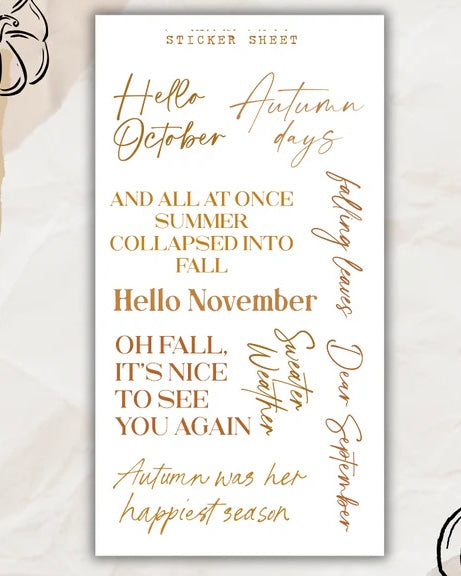 STICKER SHEET
Hello
October
Autumn
days
falling leaves
AND ALL AT ONCE
SUMMER
COLLAPSED INTO
FALL
Hello November
OH FALL,
IT'S NICE
TO SEE
YOU AGAIN
Sweater
Weather
Dear September
Autumn was her
happiest season